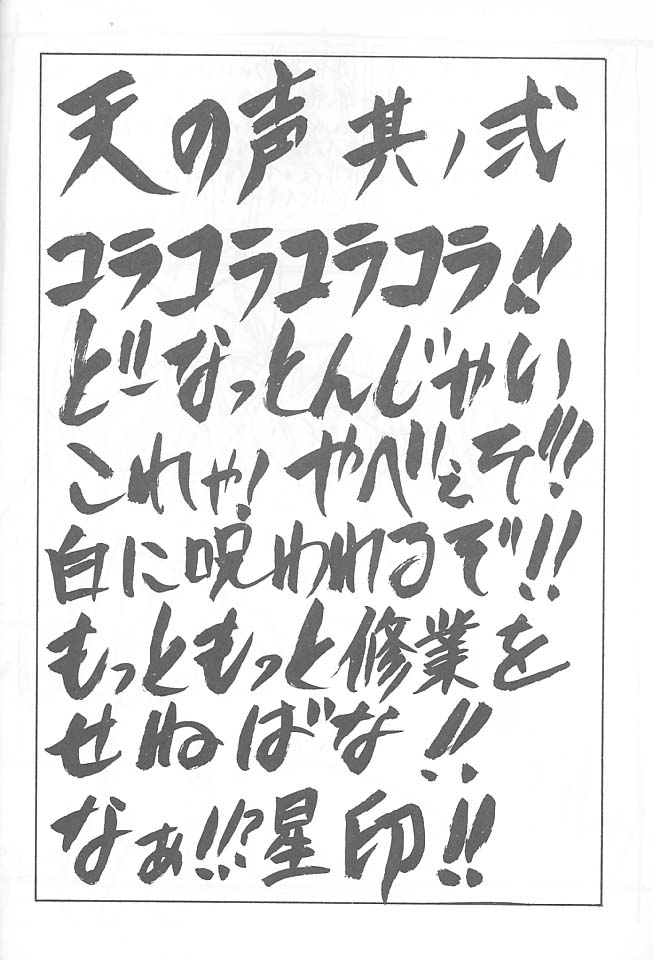 天の声 其ノ弐
コラコラコラコラ!!
どーなっとんじゃい
これゃ! やべぇぞ!!!
白に呪われるぞ!!
もっともっと修業を
せねばな!!
なぁ!!?星印!!